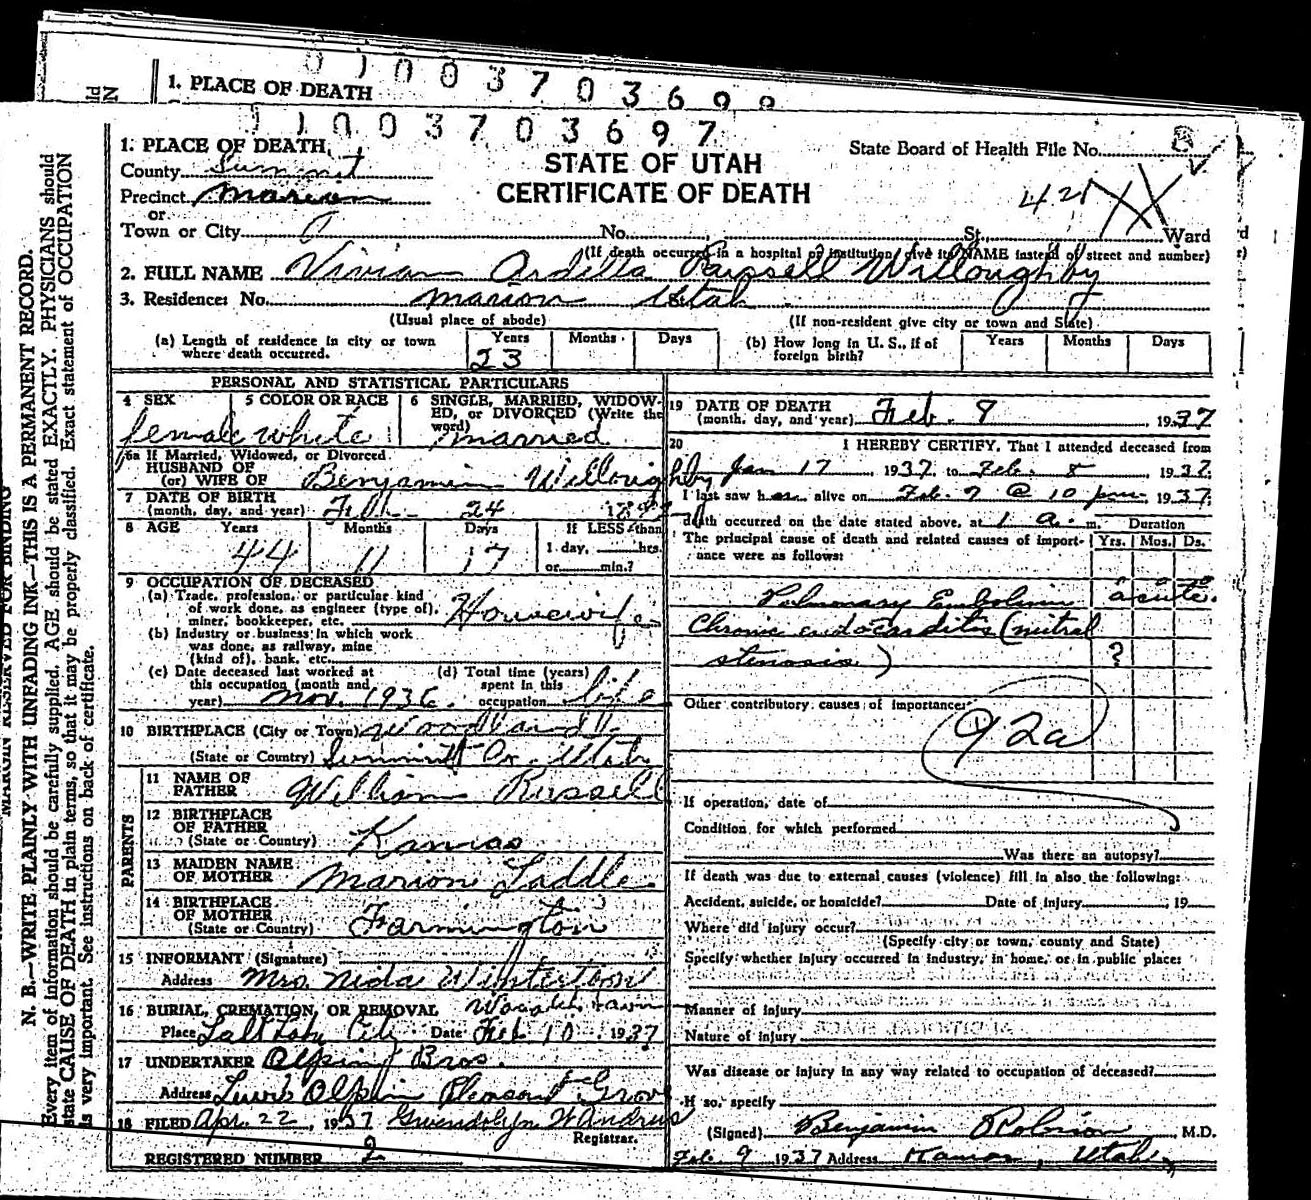 1. PLACE OF DEATH
1 0 0 3 7 0 3 6 9
1 1 0 0 3 7 0 3 6 9 7
1. PLACE OF DEATH
STATE OF UTAH
State Board of Health File No.
8
County Summit
CERTIFICATE OF DEATH
Precinct Marion
421
or
Town or City No. St., Ward
(If death occurred in a hospital or institution, give its NAME instead of street and number)
2. FULL NAME Vivian Ardella Russell Willoughby
3. Residence: No. Marion Utah
(Usual place of abode) (If non-resident give city or town and State)
(a) Length of residence in city or town where death occurred. Years 23 Months Days
(b) How long in U. S., if of foreign birth? Years Months Days
PERSONAL AND STATISTICAL PARTICULARS
4 SEX female
5 COLOR OR RACE white
6 SINGLE, MARRIED, WIDOWED, or DIVORCED (Write the word) married
6a If Married, Widowed, or Divorced
HUSBAND OF
(or) WIFE OF Benjamin Willoughby
7 DATE OF BIRTH
(month, day, and year) Feb. 24
8 AGE Years 44 Months 11 Days 17 If LESS than
1 day, hrs.
or min.?
9 OCCUPATION OF DECEASED
(a) Trade, profession, or particular kind of work done, as engineer (type of), miner, bookkeeper, etc. Housewife
(b) Industry or business in which work was done, as railway, mine (kind of), bank, etc.
(c) Date deceased last worked at this occupation (month and year) Nov. 1936
(d) Total time (years) spent in this occupation life
10 BIRTHPLACE (City or Town)
(State or Country) Summit Co. Utah
PARENTS
11 NAME OF FATHER William Russell
12 BIRTHPLACE OF FATHER
(State or Country) Kansas
13 MAIDEN NAME OF MOTHER Marion
14 BIRTHPLACE OF MOTHER
(State or Country) Farmington
15 INFORMANT (Signature)
Address Mrs. Nida Winterton
16 BURIAL, CREMATION, OR REMOVAL Wasatch Lawn
Place Salt Lake City Date Feb 10 1937
17 UNDERTAKER Olpin Bros.
Address Olpin Pleasant Grove
18 FILED Apr. 22, 1937 Gwendolyn W Andrus
Registrar.
REGISTERED NUMBER 2
19 DATE OF DEATH
(month, day, and year) Feb. 8 1937
20 I HEREBY CERTIFY, That I attended deceased from
Jan 17 1937 to Feb. 8 1937
I last saw her alive on Feb. 7 @ 10 pm 1937
death occurred on the date stated above, at 1 a. m. Duration
The principal cause of death and related causes of importance were as follows: Yrs. Mos. Ds.
Pulmonary Embolism acute.
Chronic endocarditis (mitral
stenosis) ?
Other contributory causes of importance:
92a
If operation, date of
Condition for which performed
Was there an autopsy?
If death was due to external causes (violence) fill in also the following:
Accident, suicide, or homicide? Date of injury 19
Where did injury occur?
(Specify city or town, county and State)
Specify whether injury occurred in industry, in home, or in public place:
Manner of injury
Nature of injury
Was disease or injury in any way related to occupation of deceased?
If so, specify
(Signed) Benjamin Robison M.D.
Feb. 9 1937 Address Kamas, Utah
MARGIN RESERVED FOR BINDING
N. B.—WRITE PLAINLY WITH UNFADING INK—THIS IS A PERMANENT RECORD.
Every item of information should be carefully supplied. AGE should be stated EXACTLY. PHYSICIANS should
state CAUSE OF DEATH in plain terms, so that it may be properly classified. Exact statement of OCCUPATION
is very important. See instructions on back of certificate.